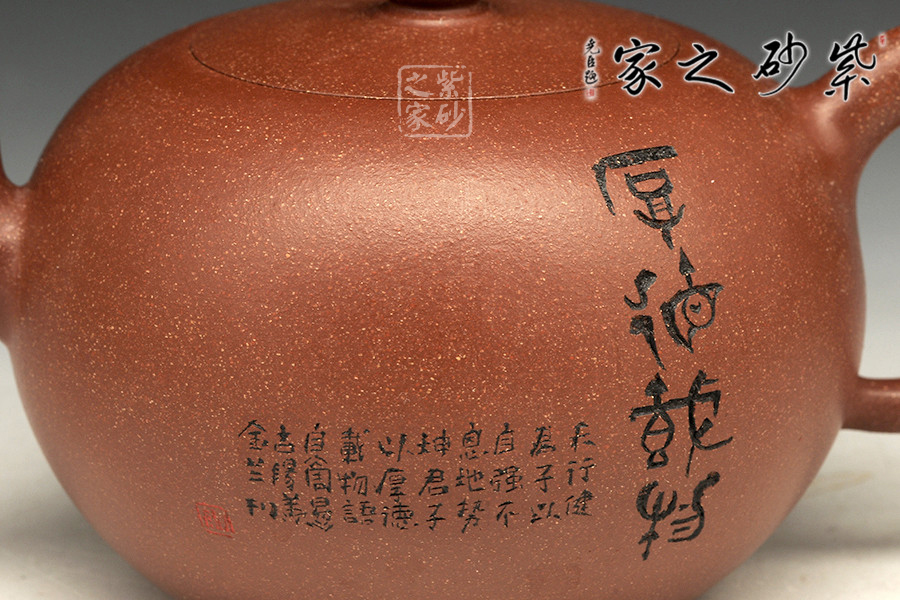 紫砂之家
紫砂
之家
厚德載物
天行健
君子以
自强不
息地势
坤君子
以厚德
載物語
自周易
古陽羨
金兰